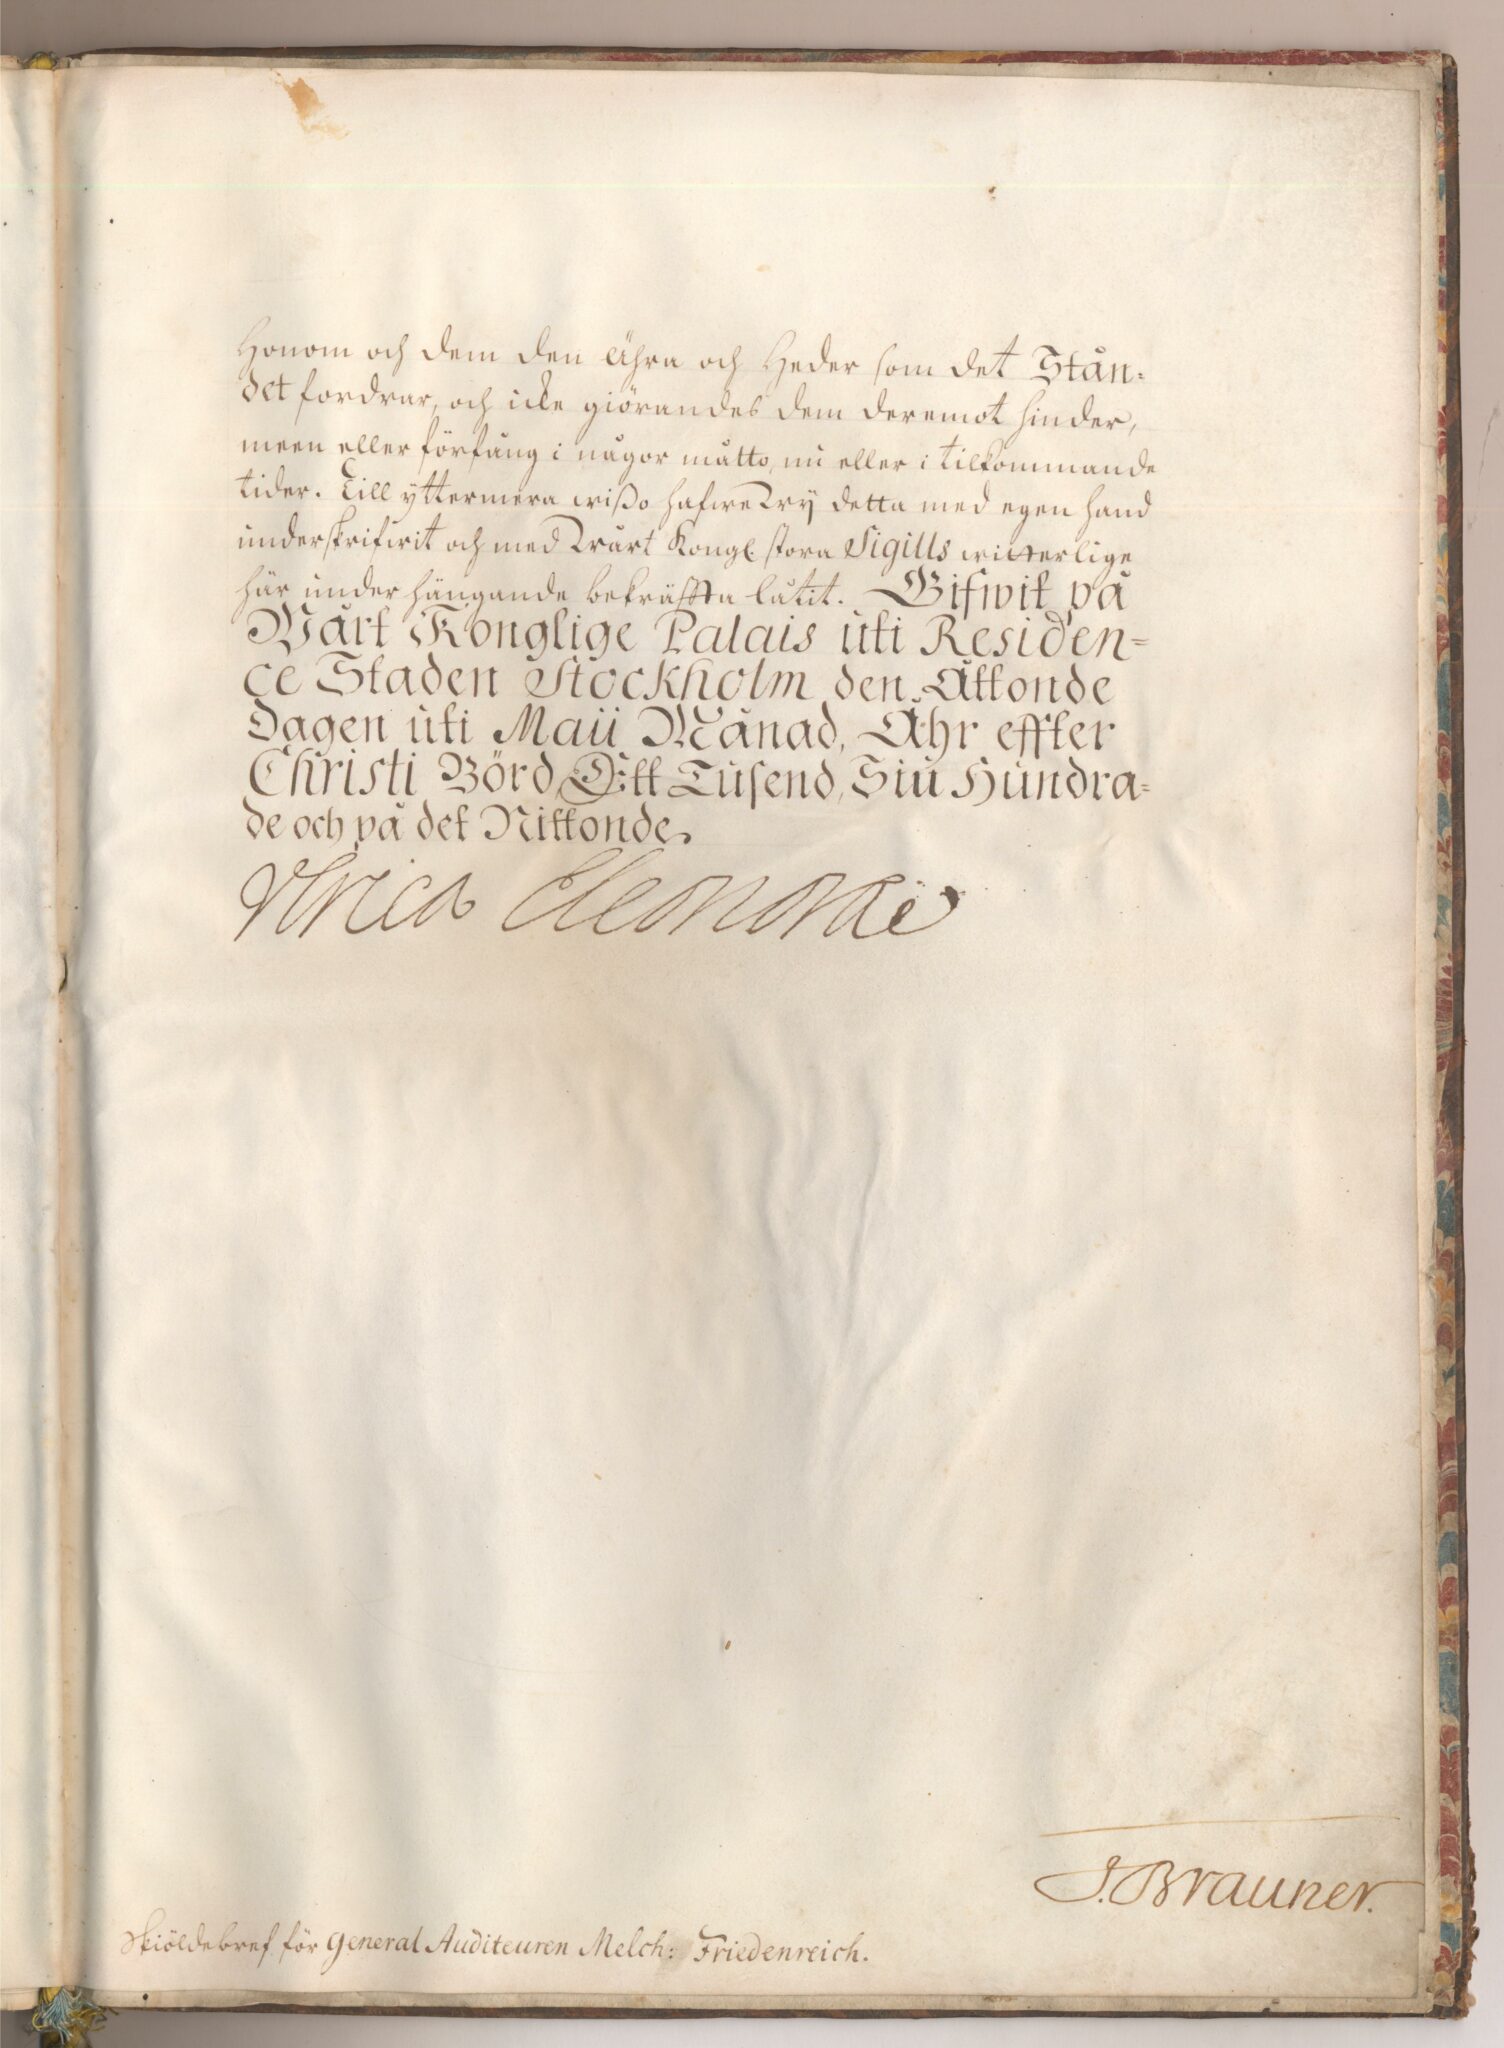 Honom och dem den Ähra och Heder som det Stån-
det fordrar, och icke giörandes dem deremot hinder,
meen eller förfång i någor måtto, nu eller i tilkommande
tider. Till yttermera wißo hafwe Wij detta med egen hand
underskrifwit och med Wårt Kongl stora Sigills witterlige
här under hängande bekräffta låtit. Gifwit på
Wårt Konglige Palais uti Residen-
ce Staden Stockholm den Åttonde
Dagen uti Maii Månad, Åhr effter
Christi Börd, Ett Tusend, Siu Hundra-
de och på det Nittonde.
Ulrica Eleonora
J. Brauner.
Skiöldebref för General Auditeuren Melch: Friedenreich.